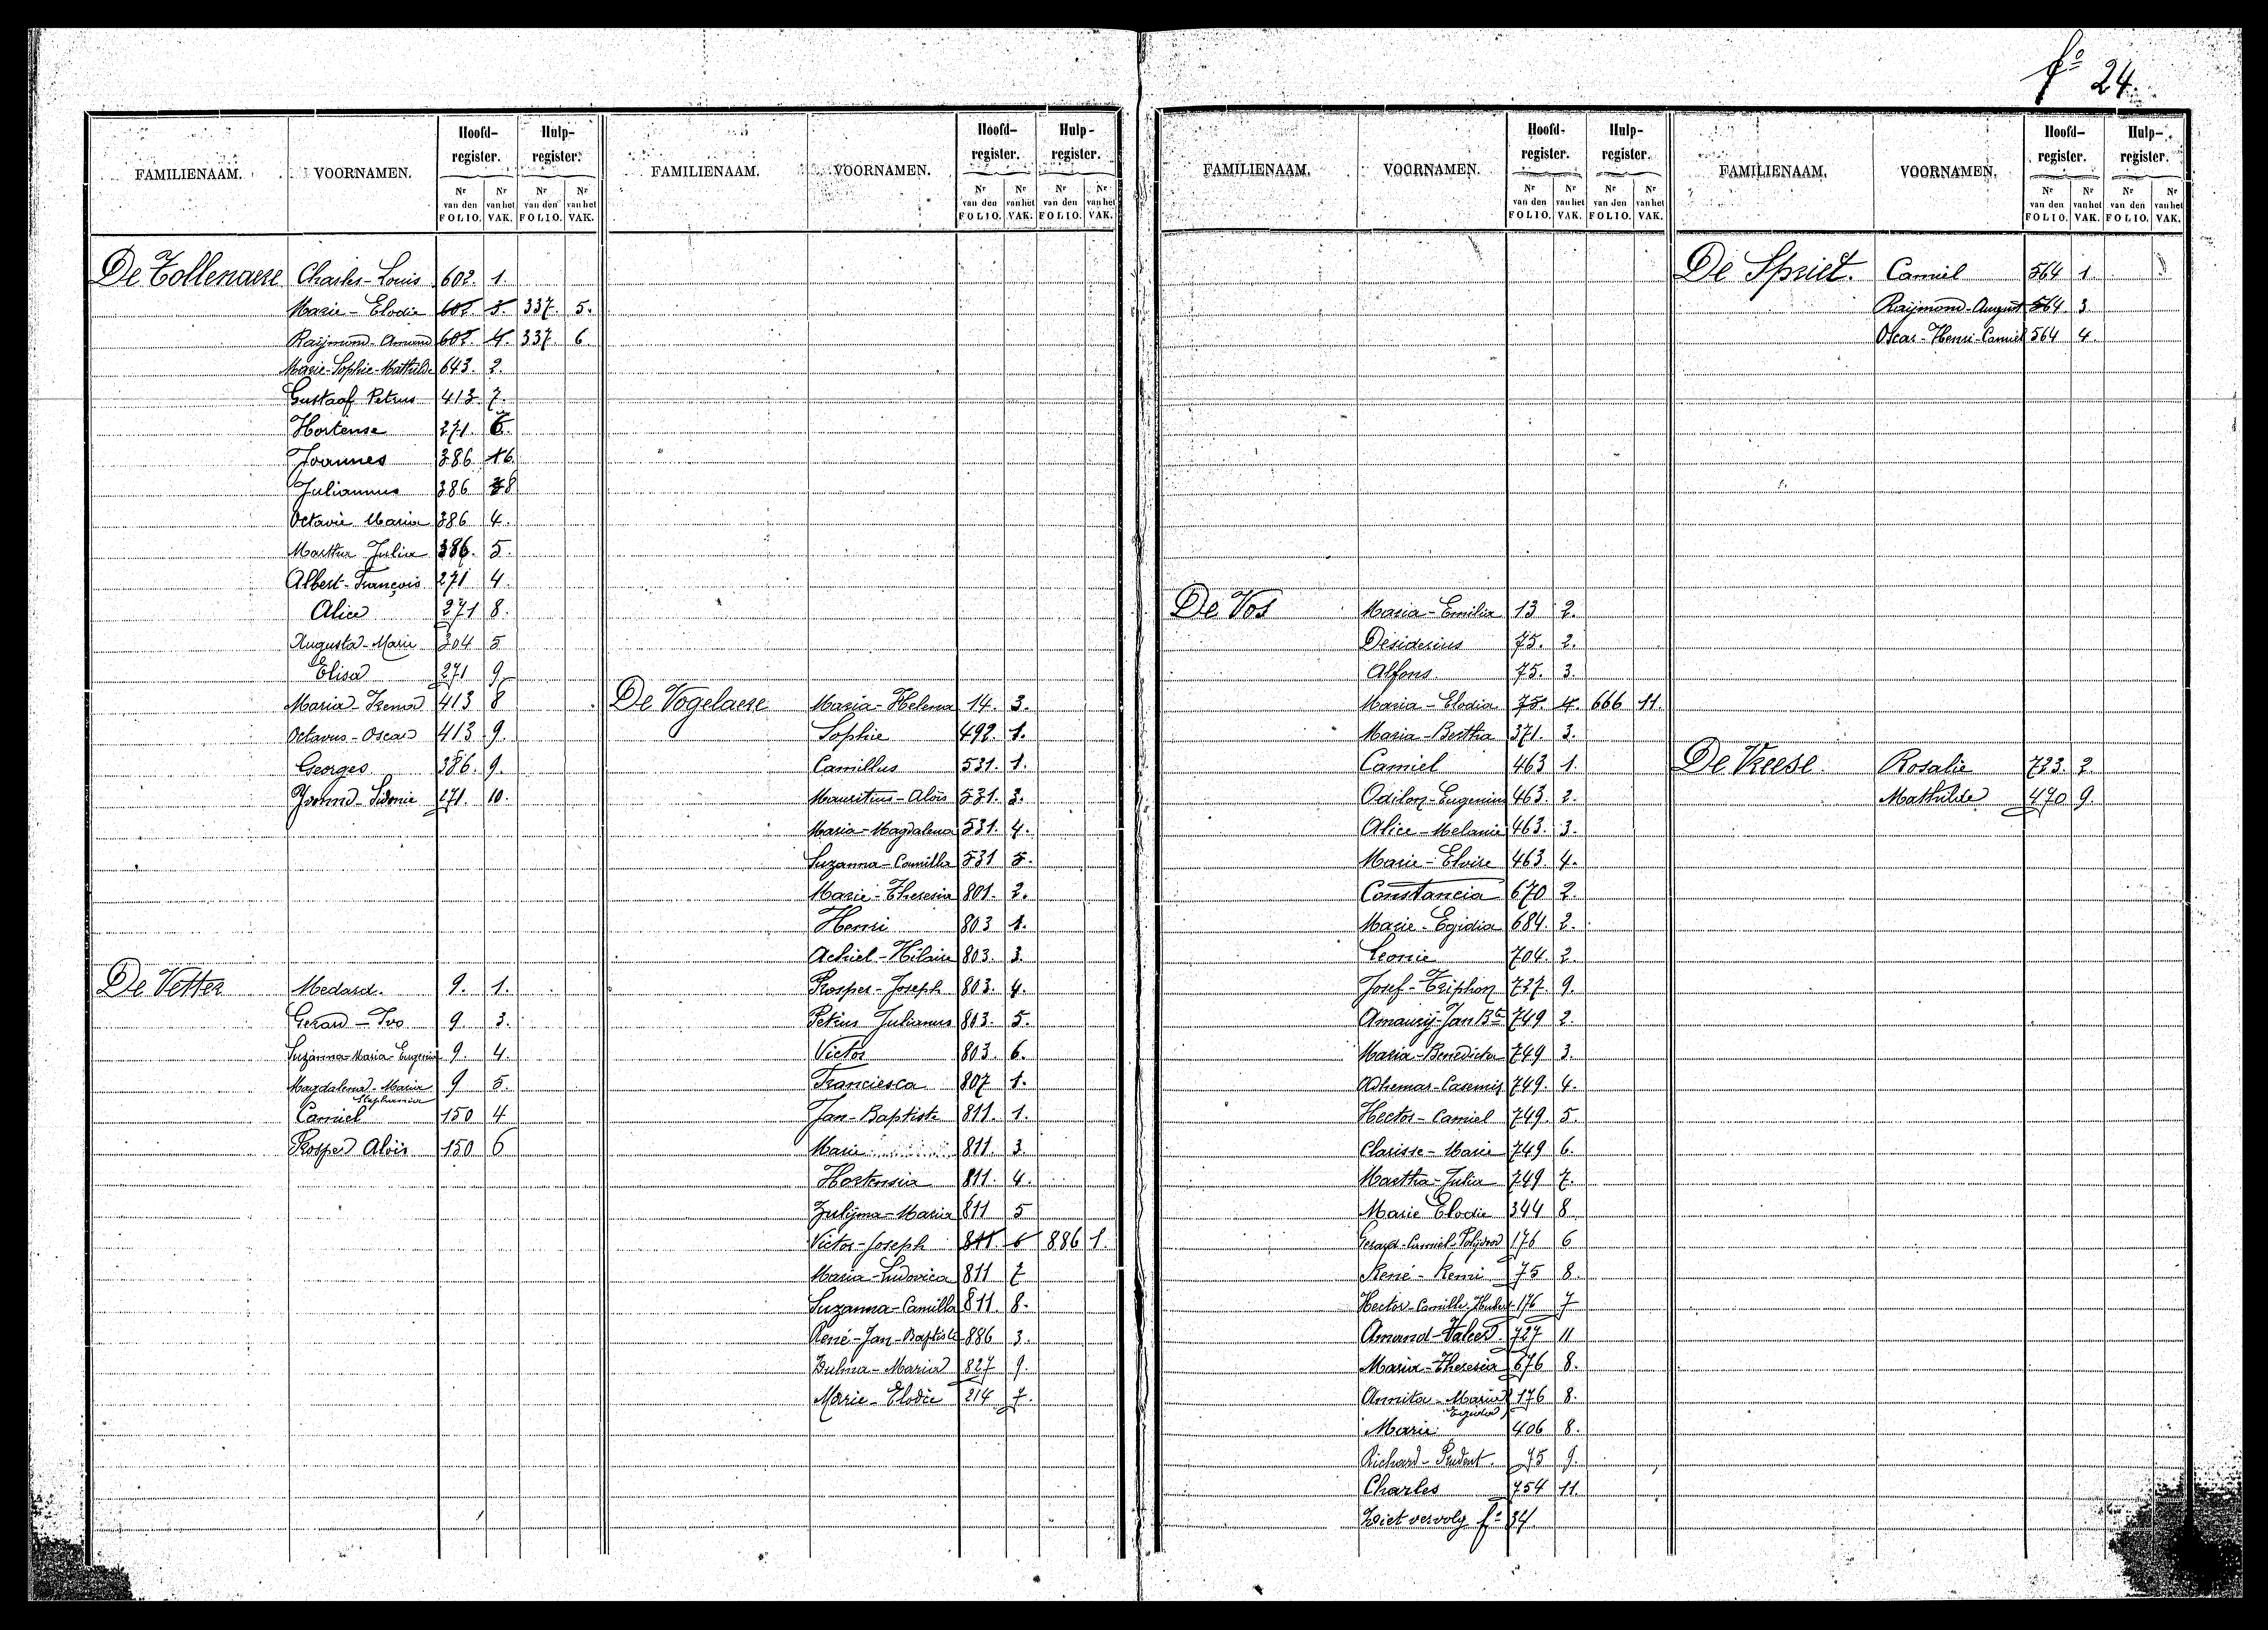 fº 24.
FAMILIENAAM. VOORNAMEN. Hoofd-register. Hulp-register.
Nr van den FOLIO. Nr van het VAK. Nr van den FOLIO. Nr van het VAK.
De Tollenaere Charles-Louis 602. 1.
Marie-Elodie 602. 3. 337. 5.
Raijmond-Amand 602 4. 337. 6.
Marie-Sophie-Mathilde 643. 2.
Gustaaf Petrus 413. 7.
Hortense 271. 6.
Joannes 386 16.
Juliannus 386 8
Octavie Maria 386 4.
Martha Julia 386. 5.
Albert-François 271 4.
Alice 271 8.
Augusta-Marie 304 5
Elisa 271 9
Maria-Irena 413 8
Octavus-Oscar 413 9.
Georges 386. 9.
Yvonna-Sidonie 271. 10.
De Vetter Medard. 9. 1.
Gerard-Ivo 9. 3.
Suzanna-Maria-Eugenia 9. 4.
Magdalena-Maria Stephania 9 5.
Camiel 150 4
Prosper Aloïs 150 6
FAMILIENAAM. VOORNAMEN. Hoofd-register. Hulp-register.
Nr van den FOLIO. Nr van het VAK. Nr van den FOLIO. Nr van het VAK.
De Vogelaere Maria-Helena 14. 3.
Sophie 492. 1.
Camillus 531. 1.
Mauritius-Aloïs 531. 3.
Maria-Magdalena 531. 4.
Suzanna-Camilla 531 5.
Marie-Theresia 801. 2.
Henri 803 1.
Achiel-Hilaire 803. 3.
Prosper-Joseph 803. 4.
Petrus Julianus 803. 5.
Victor 803. 6.
Franciesca 807 1.
Jan-Baptiste 811. 1.
Marie 811. 3.
Hortensia 811. 4.
Zulijma-Maria 811 5
Victor-Joseph 811. 6 886 1.
Maria-Ludovica 811 7
Suzanna-Camilla 811. 8.
René-Jan-Baptiste 886 3.
Zulma-Maria 827 9.
Marie-Elodie 214 7.
FAMILIENAAM. VOORNAMEN. Hoofd-register. Hulp-register.
Nr van den FOLIO. Nr van het VAK. Nr van den FOLIO. Nr van het VAK.
De Vos Maria-Emilia 13 2.
Desiderius 75. 2.
Alfons 75. 3.
Maria-Elodia 75. 4. 666 11.
Maria-Bertha 371. 3.
Camiel 463 1.
Odilon-Eugenius 463. 2.
Alice-Melanie 463. 3.
Marie-Elvire 463 4.
Constancia 670 2.
Marie-Egidia 684. 2.
Leonie 704. 2.
Josef-Triphon 737. 9.
Amaurij-Jan Bte 749 2.
Maria-Benedicta 749 3.
Adhemar-Casemir 749. 4.
Hector-Camiel 749. 5.
Clarisse-Marie 749 6.
Martha-Julia 749 7.
Marie Elodie 344 8.
Gerard-Camiel-Polijdoor 176 6
René-Remi 75 8.
Hector-Camille-Hubert 176 7
Amand-Valeer 727 11
Maria-Theresia 676 8.
Annita-Maria Egidia 176 8.
Marie 406 8.
Richard-Prudent. 75 9.
Charles 754 11
Ziet vervolg fº 34.
FAMILIENAAM. VOORNAMEN. Hoofd-register. Hulp-register.
Nr van den FOLIO. Nr van het VAK. Nr van den FOLIO. Nr van het VAK.
De Spriet. Camiel 564 1.
Raijmond-August 564. 3.
Oscar-Henri-Camiel 564 4.
De Vreese. Rosalie 723. 2.
Mathilde 470 9.